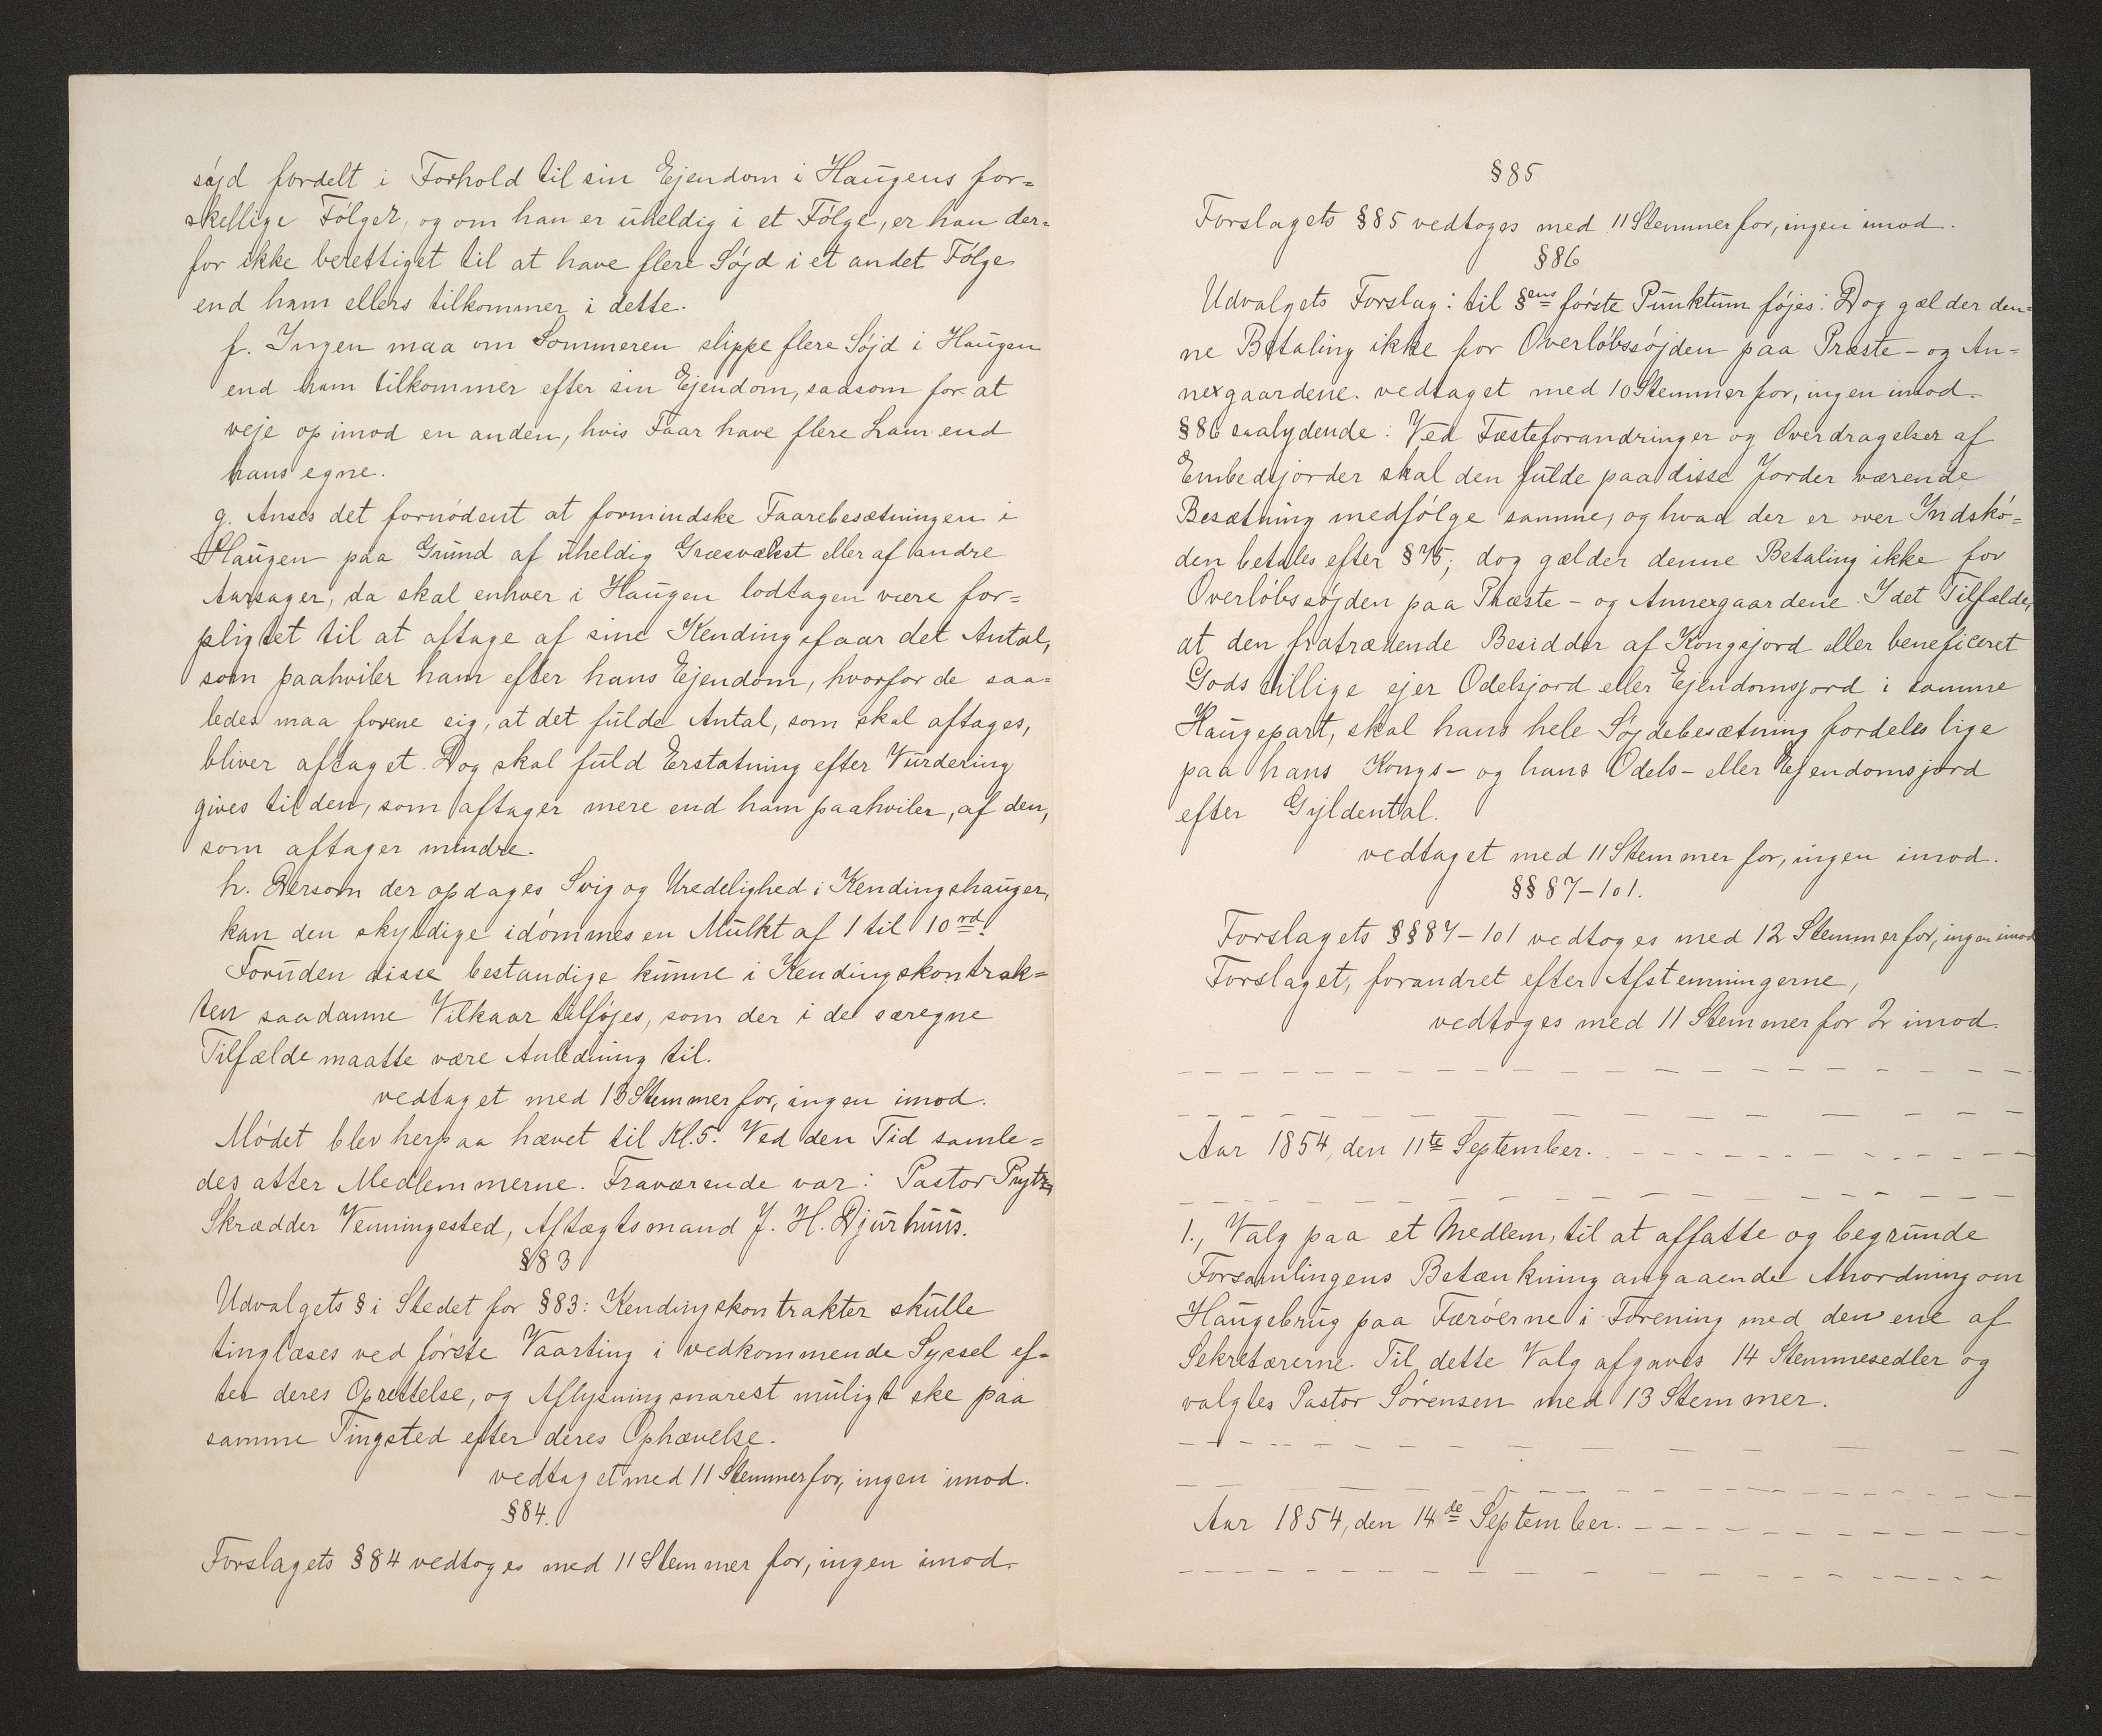 søjd fordelt i Forhold til sin Ejendom i Haugens for=
skellige Følger, og om han er uheldig i et Følge, er han der=
for ikke berettiget til at have flere Søjd i et andet Følge
end ham ellers tilkommer i dette.
f. Ingen maa om Sommeren slippe flere Søjd i Haugen
end ham tilkommer efter sin Ejendom, saasom for at
veje op imod en anden, hvis Faar have flere Lam end
hans egne.
g. Anses det fornødent at formindske Faarebesætningen i
Haugen paa Grund af uheldig Græsvækst eller af andre
Aarsager, da skal enhver i Haugen lodtagen være for=
pligtet til at aftage af sine Kendingsfaar det Antal,
som paahviler ham efter hans Ejendom, hvorfor de saa=
ledes maa forene sig, at det fulde Antal, som skal aftages,
bliver aftaget. Dog skal fuld Erstatning efter Vurdering
gives til den, som aftager mere end ham paahviler, af den,
som aftager mindre.
h. Dersom der opdages Svig og Uredelighed i Kendingshauger,
kan den skyldige idømmes en Mulkt af 1 til 10 rd.
Foruden disse bestandige kunne i Kendingskontrak=
ten saadanne Vilkaar tilføjes, som der i de særegne
Tilfælde maatte være Anledning til.
vedtaget med 13 Stemmer for, ingen imod.
Mødet blev herpaa hævet til Kl. 5. Ved den Tid samle=
des atter Medlemmerne. Fraværende var: Pastor Prytz,
Skrædder Venningested, Aftægtsmand J. H. Djurhuus.
§83
Udvalgets § i Stedet for §83: Kendingskontrakter skulle
tinglæses ved første Vaarting i vedkommende Syssel ef=
ter deres Oprettelse, og Aflysning snarest muligt ske paa
samme Tingsted efter deres Ophævelse.
vedtaget med 11 Stemmer for, ingen imod.
§84.
Forslagets §84 vedtoges med 11 Stemmer for, ingen imod.
§85
Forslagets §85 vedtoges med 11 Stemmer for, ingen imod.
§86
Udvalgets Forslag: til §ens første Punktum føjes: Dog gælder den=
ne Betaling ikke for Overløbssøjden paa Præste- og An=
nexgaardene. vedtaget med 10 Stemmer for, ingen imod.
§86 saalydende: Ved Fæsteforandringer og Overdragelser af
Embedsjorder skal den fulde paa disse Jorder værende
Besætning medfølge samme, og hvad der er over Indskø=
den betales efter §75; dog gælder denne Betaling ikke for
Overløbssøjden paa Præste- og Annexgaardene. I det Tilfælde,
at den fratrædende Besidder af Kongsjord eller beneficeret
Gods tillige ejer Odelsjord eller Ejendomsjord i samme
Haugepart, skal hans hele Søjdebesætning fordeles lige
paa hans Kongs- og hans Odels- eller Ejendomsjord
efter Gyldental.
vedtaget med 11 Stemmer for, ingen imod.
§§ 87-101.
Forslagets §§87-101 vedtoges med 12 Stemmer for, ingen imod
Forslaget, forandret efter Afstemningerne,
vedtoges med 11 Stemmer for 2 imod.
Aar 1854, den 11te September.
1., Valg paa et Medlem, til at affatte og begrunde
Forsamlingens Betænkning angaaende Anordning om
Haugebrug paa Færøerne i Forening med den ene af
Sekretærerne. Til dette Valg afgaves 14 Stemmesedler og
valgtes Pastor Sørensen med 13 Stemmer.
Aar 1854, den 14de September.